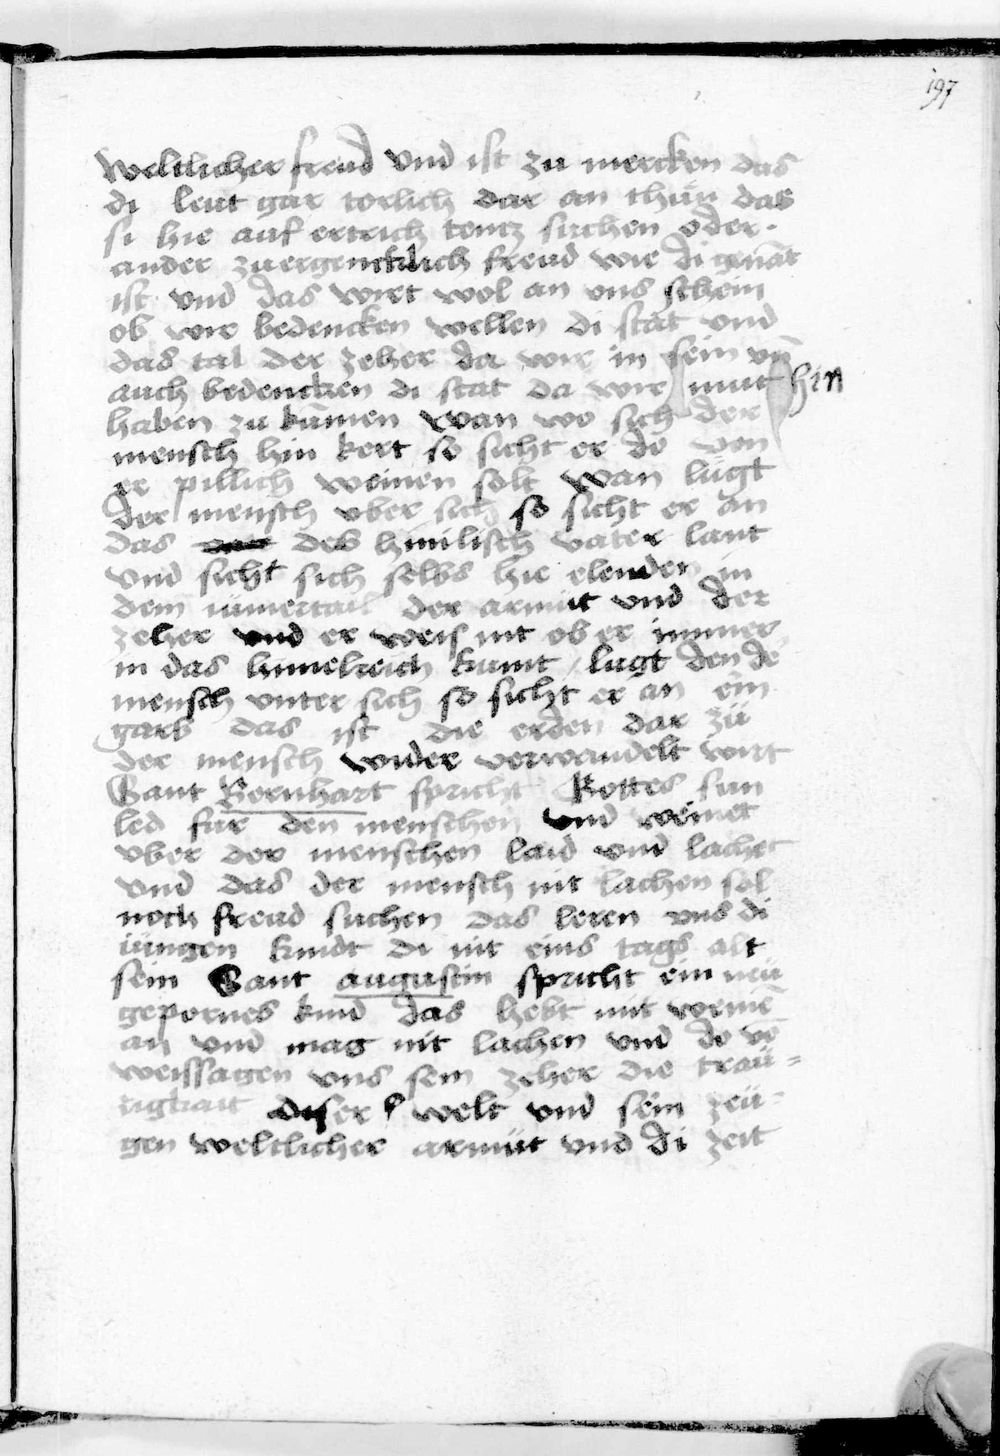 197
weltlicher freud vnd ist zu mercken das
di leut gar torlich dar an thün das
si hie auf ertrich tentz suchen oder
ander zuergencklich freud wie di genāt
ist vnd das wirt wol an vns schein
ob wir bedencken wellen di stat vnd
das tal der zeher da wir in sein vn̄
auch bedencken di stat da wir mut hin
haben zu kūmen wan wo sich der
mensch hin kert so sicht er do von
er pillich weinen solt wan lugt
der mensch vber sich so sicht er an
das des himlisch vater lant
vnd sicht sich selbs hie elender in
dem iamertail der armüt vnd der
zeher vnd er weis nit ob er immer
in das himelreich kumt lugt den de
mensch vnter sich so sicht er an ein
garb das ist die erden dar zü
der mensch wider verwandelt wirt
Sant Bernhart spricht Gottes sun
led für den menschen vnd weinet
vber der menschen laid vnd lachet
vnd das der mensch nit lachen sol
noch freud suchen das leren vns di
iüngen kindt di nit eins tags alt
sein Sant augustin spricht ein neü
gepornes kind das hebt mit weinē
an vnd mag nit lachen vnd do vō
weissagen vns sein zeher die traü=
rigkait diser welt vnd sein zeü=
gen weltlicher armüt vnd di zeit